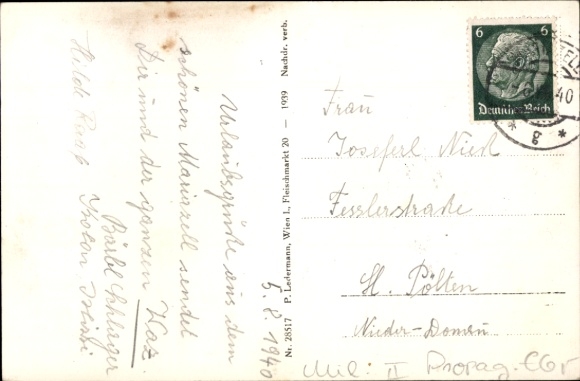 Urlaubsgrüße aus dem
schönen Mariazell sendet
Dir und der ganzen
Bärbl
Hilde
5. 8. 1940
Nr. 28517 P. Ledermann, Wien I., Fleischmarkt 20 — 1939 Nachdr. verb.
6 6
Deutsches Reich
40
g
Frau
Joseferl
Fesslerstraße
St. Pölten
Nieder-Donau
Mil: II Propag.